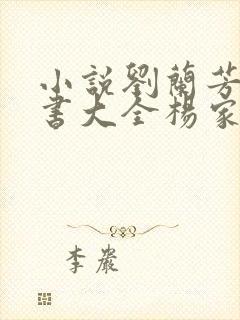 小説劉蘭芳
書大全楊家
李巖